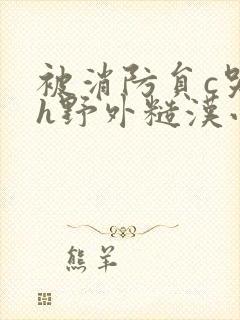 被消防员c
h野外糙漢
熊羊